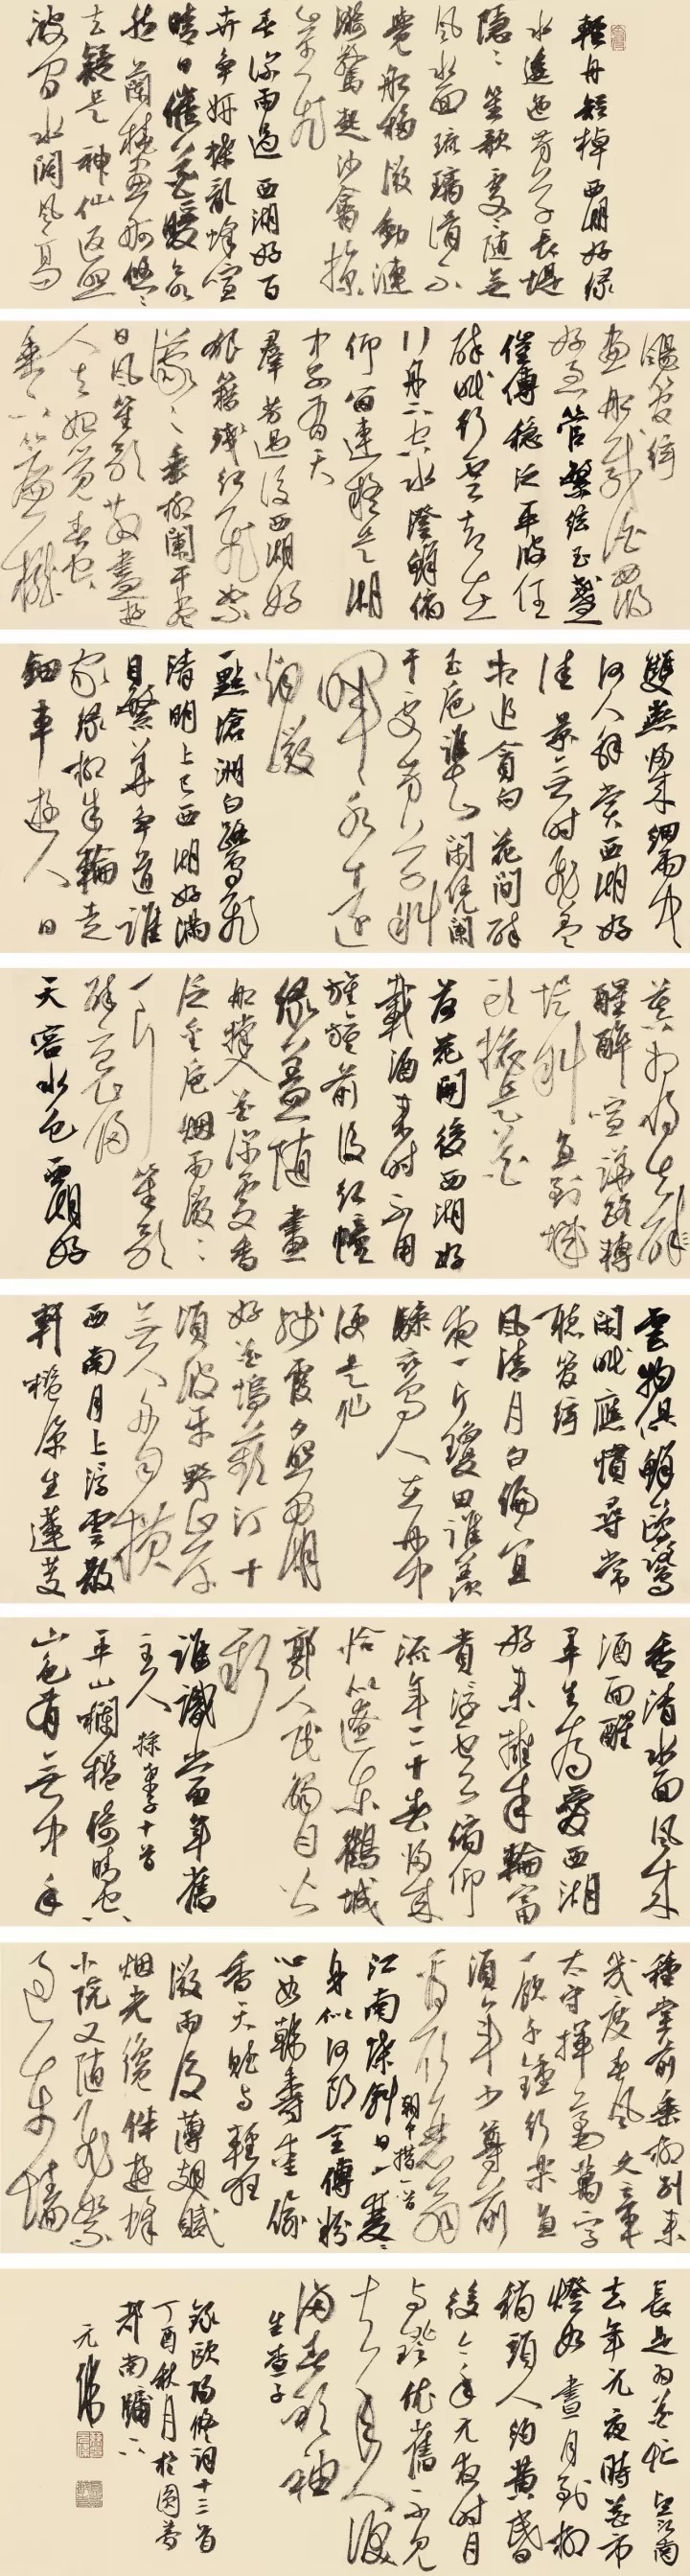 輕舟短棹西湖好綠
水逶迤芳草長堤
隱隱笙歌處處隨無
風水面琉璃滑不
覺船移微動漣
漪驚起沙禽掠
岸飛
春深雨過西湖好百
卉爭妍蝶亂蜂喧
晴日催花暖欲
然蘭橈畫舸悠悠
去疑是神仙返照
波間水闊風高
颺管絃
畫船載酒西湖
好急管繁絃玉盞
催傳穩泛平波任
醉眠行雲却在
行舟下空水澄鮮俯
仰留連疑是湖
中別有天
羣芳過後西湖好
狼籍殘紅飛絮
濛濛垂柳闌干盡
日風笙歌散盡遊
人去始覺春空
垂下簾櫳
雙燕歸來細雨中
何人解賞西湖好
佳景無時飛蓋
相追貪向花間醉
玉卮誰知閑凭闌
干處芳草斜
暉水遠
烟微
一點滄洲白鷺飛
清明上巳西湖好滿
目繁華爭道誰
家綠柳朱輪走
鈿車遊人日
暮相將去醒
醒醉喧譁路轉
堤斜直到城
頭總是花
荷花開後西湖好
載酒來時不用
旌旗前後紅幢
綠蓋隨畫
船撐入花深處香
泛金卮烟雨微微
一片笙歌
醉裏歸
天容水色西湖好
雲物俱鮮鷗鷺
閑眠應慣尋常
聽管絃
風清月白偏宜
夜一片瓊田誰羨
驂鸞人在舟中
便是仙
殘霞夕照西湖
好花塢蘋汀十
頃波平野岸
無人舟自橫
西南月上浮雲散
軒檻涼生蓮芰
香清水面風來
酒面醒
平生為愛西湖
好來擁朱輪富
貴浮雲俯仰
流年二十春歸來
恰似遼東鶴城
郭人民觸目皆
新
誰識當年舊
主人 採桑子十首
平山欄檻倚晴空
山色有無中手
種堂前垂柳別來
幾度春風文章
太守揮毫萬字
一飲千鍾行樂直
須年少尊前
看取衰翁
朝中措一首
江南蝶斜日一雙雙
身似何郎全傅粉
心如韓壽愛偷
香天賦與輕狂
微雨後薄翅膩
烟光纔伴遊蜂
小院又隨飛絮
過東墻
長是為花忙 望江南
去年元夜時花市
燈如晝月到柳
梢頭人約黃昏
後今年元夜時月
與燈依舊不見
去年人淚
滿春衫袖
生查子
錄歐陽修詞十三首
丁酉秋月於